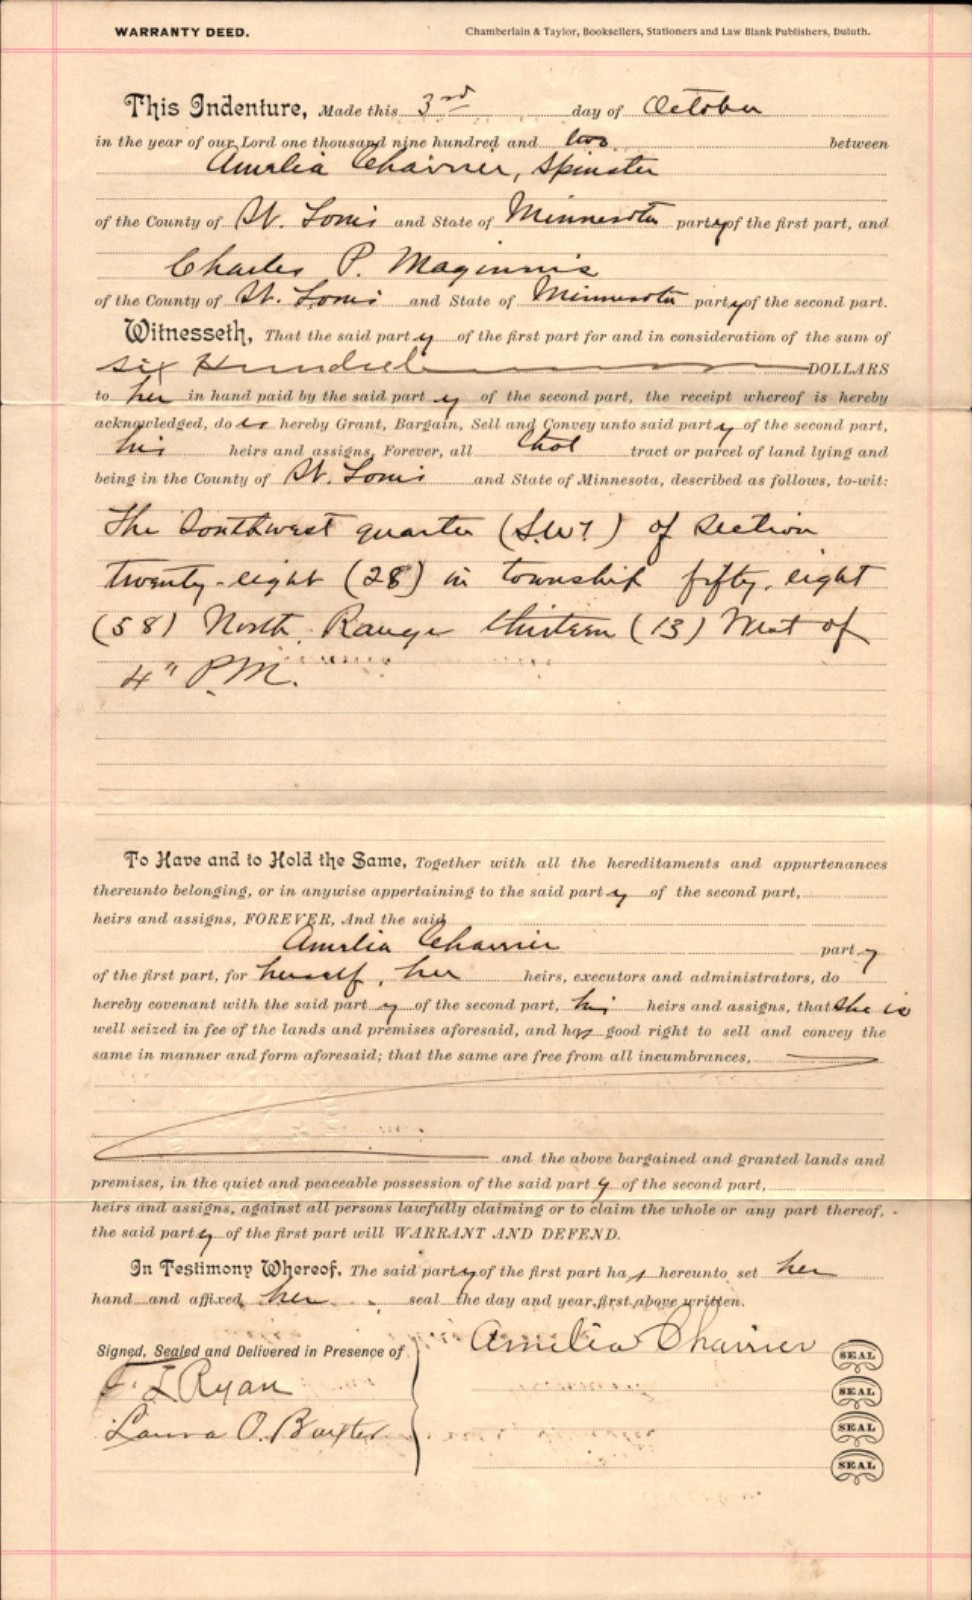 WARRANTY DEED. Chamberlain & Taylor, Booksellers, Stationers and Law Blank Publishers, Duluth.
This Indenture, Made this 3rd day of October
in the year of our Lord one thousand nine hundred and two between
Amelia Charrier, Spinster
of the County of St. Louis and State of Minnesota party of the first part, and
Charles P. Maginnis
of the County of St. Louis and State of Minnesota party of the second part.
Witnesseth, That the said party of the first part for and in consideration of the sum of
six Hundred DOLLARS
to her in hand paid by the said party of the second part, the receipt whereof is hereby
acknowledged, does hereby Grant, Bargain, Sell and Convey unto said party of the second part,
his heirs and assigns, Forever, all that tract or parcel of land lying and
being in the County of St. Louis and State of Minnesota, described as follows, to-wit:
The Southwest quarter (S.W.¼) of Section
twenty-eight (28) in township fifty-eight
(58) North, Range thirteen (13) West of
4" P.M.
To Have and to Hold the Same, Together with all the hereditaments and appurtenances
thereunto belonging, or in anywise appertaining to the said party of the second part,
heirs and assigns, FOREVER, And the said
Amelia Charrier party
of the first part, for herself, her heirs, executors and administrators, do
hereby covenant with the said party of the second part, his heirs and assigns, that she is
well seized in fee of the lands and premises aforesaid, and has good right to sell and convey the
same in manner and form aforesaid; that the same are free from all incumbrances,
and the above bargained and granted lands and
premises, in the quiet and peaceable possession of the said party of the second part,
heirs and assigns, against all persons lawfully claiming or to claim the whole or any part thereof,
the said party of the first part will WARRANT AND DEFEND.
In Testimony Whereof, The said party of the first part has hereunto set her
hand and affixed her seal the day and year first above written.
Signed, Sealed and Delivered in Presence of Amelia Charrier SEAL
F. L Ryan SEAL
Laura O. Baxter SEAL
SEAL